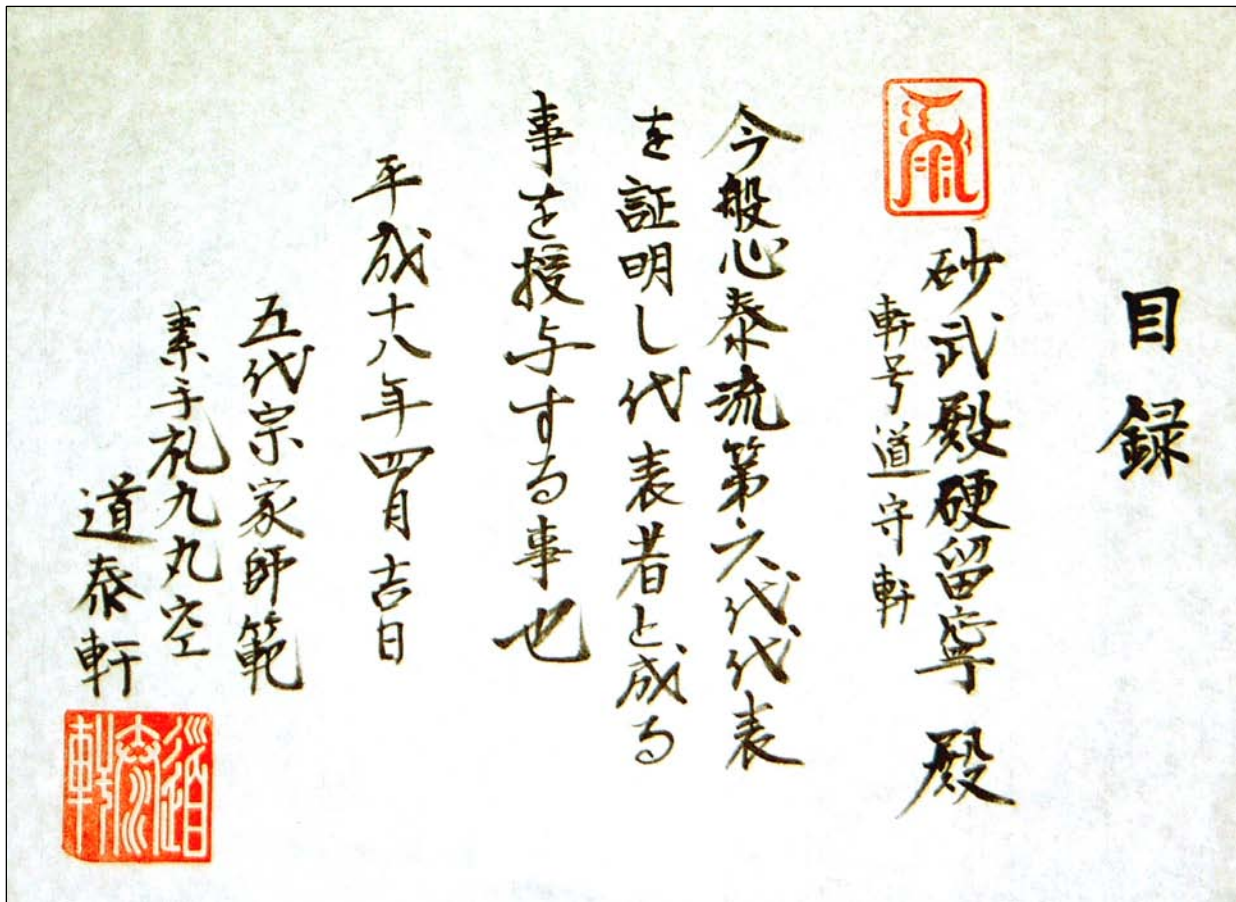 目録
砂武殿硬留寧 殿
軒号道守軒
今般心泰流第六代代表
を証明し代表者と成る
事を授与する事也
平成十八年四月吉日
五代宗家師範
素手札九九空
道泰軒
道泰軒